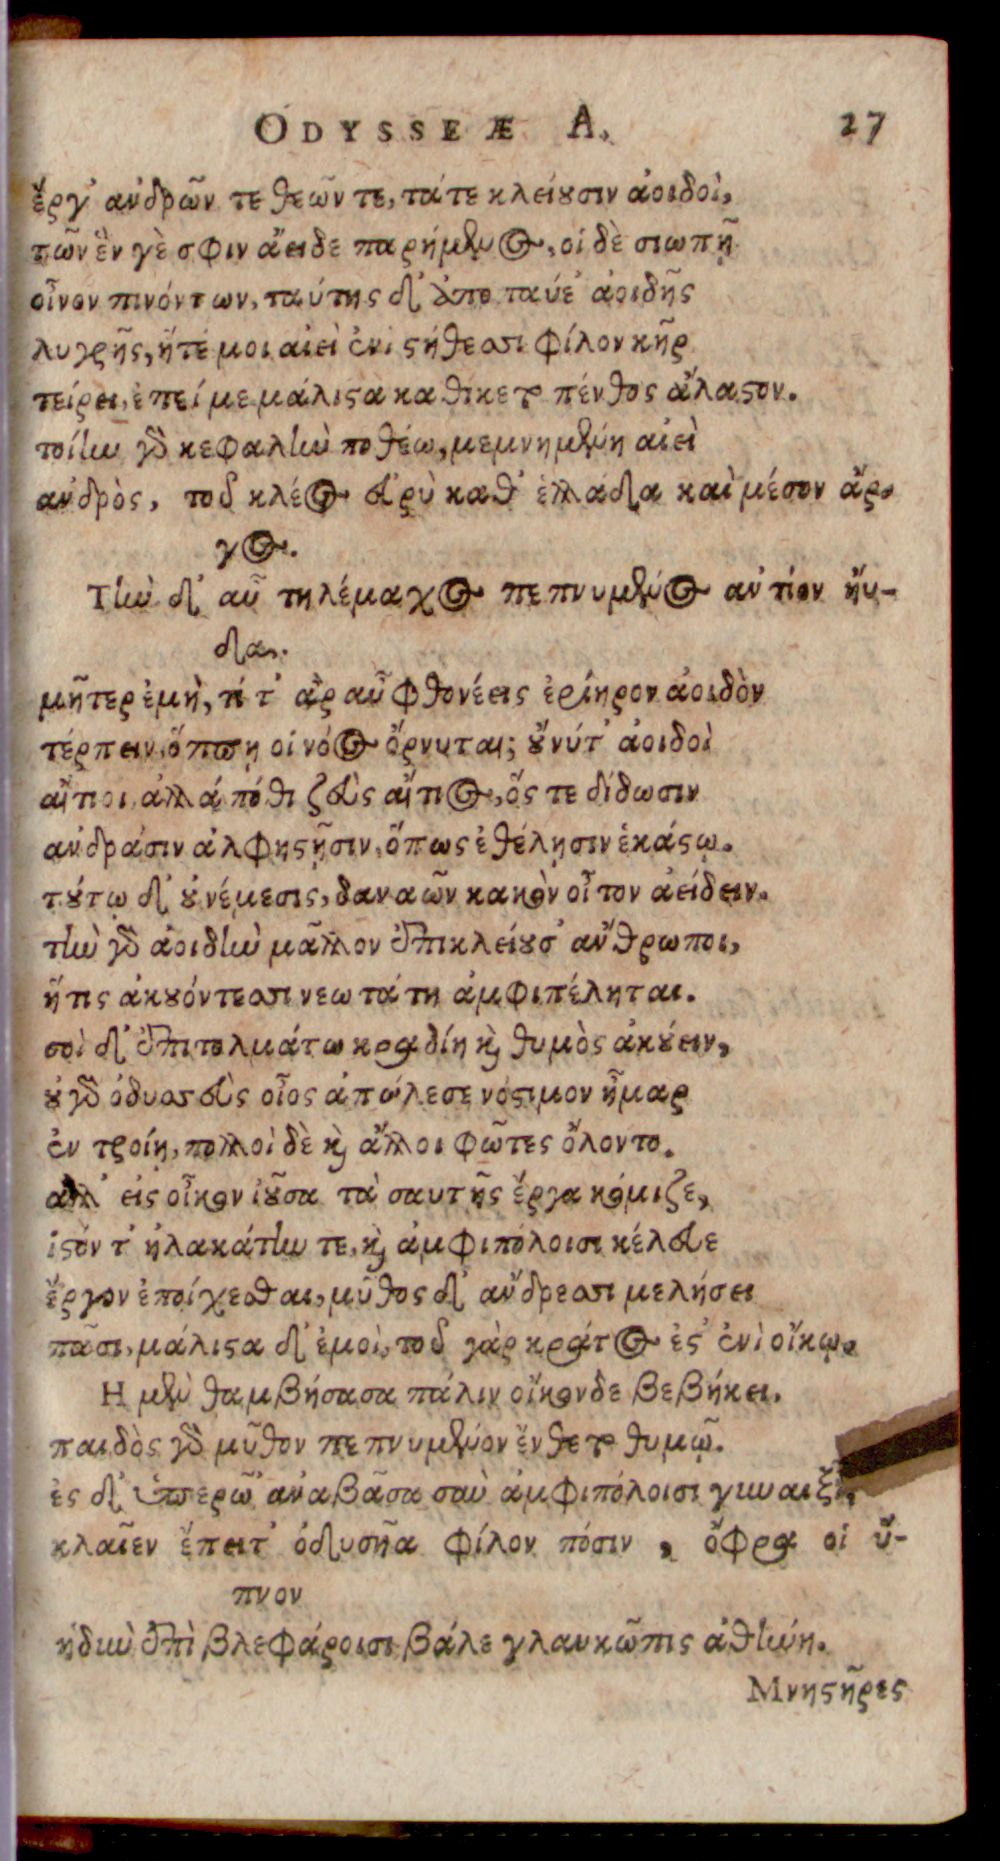 ODYSSEÆ A. 27
ἔργ' ἀνδρῶν τε θεῶν τε, τά τε κλείουσιν ἀοιδοὶ,
τῶν ἓν γὲ σφιν ἄειδε παρήμενος, οἱ δὲ σιωπῇ
οἶνον πινόντων, ταύτης δ' ἀποπαύε' ἀοιδῆς
λυγρῆς, ἥτέ μοι αἰεὶ ἐνὶ στήθεσσι φίλον κῆρ
τείρει, ἐπεί με μάλιστα καθίκετο πένθος ἄλαστον.
τοίην γὰρ κεφαλὴν ποθέω, μεμνημένη αἰεὶ
ἀνδρὸς, τοῦ κλέος εὐρὺ καθ' ἑλλάδα καὶ μέσον ἄρ-
γος.
Τὴν δ' αὖ τηλέμαχος πεπνυμένος ἀντίον ἤυ-
δα.
μῆτερ ἐμὴ, τί τ' ἂρ αὖ φθονέεις ἐρίηρον ἀοιδὸν
τέρπειν, ὅππῃ οἱ νόος ὄρνυται; οὔ νύ τ' ἀοιδοὶ
αἴτιοι, ἀλλά ποθι ζεὺς αἴτιος, ὅς τε δίδωσιν
ἀνδράσιν ἀλφηστῇσιν, ὅπως ἐθέλῃσιν ἑκάστῳ.
τούτῳ δ' οὐ νέμεσις, δαναῶν κακὸν οἶτον ἀείδειν.
τὴν γὰρ ἀοιδὴν μᾶλλον ἐπικλείουσ' ἄνθρωποι,
ἥτις ἀκουόντεσσι νεωτάτη ἀμφιπέληται.
σοὶ δ' ἐπιτολμάτω κραδίη καὶ θυμὸς ἀκούειν,
οὐ γὰρ ὀδυσσεὺς οἶος ἀπώλεσε νόστιμον ἦμαρ
ἐν τροίῃ, πολλοὶ δὲ καὶ ἄλλοι φῶτες ὄλοντο.
ἀλλ' εἰς οἶκον ἰοῦσα τὰ σαυτῆς ἔργα κόμιζε,
ἱστόν τ' ἠλακάτην τε, καὶ ἀμφιπόλοισι κέλευε
ἔργον ἐποίχεσθαι, μῦθος δ' ἄνδρεσσι μελήσει
πᾶσι, μάλιστα δ' ἐμοὶ, τοῦ γὰρ κράτος ἐστ' ἐνὶ οἴκῳ.
Η μὲν θαμβήσασα πάλιν οἴκονδε βεβήκει.
παιδὸς γὰρ μῦθον πεπνυμένον ἔνθετο θυμῷ.
ἐς δ' ὑπερῶ' ἀναβᾶσα σὺν ἀμφιπόλοισι γυναιξὶ,
κλαῖεν ἔπειτ' ὀδυσῆα φίλον πόσιν, ὄφρα οἱ ὕ-
πνον
ἡδὺν ἐπὶ βλεφάροισι βάλε γλαυκῶπις ἀθήνη.
Μνηστῆρες